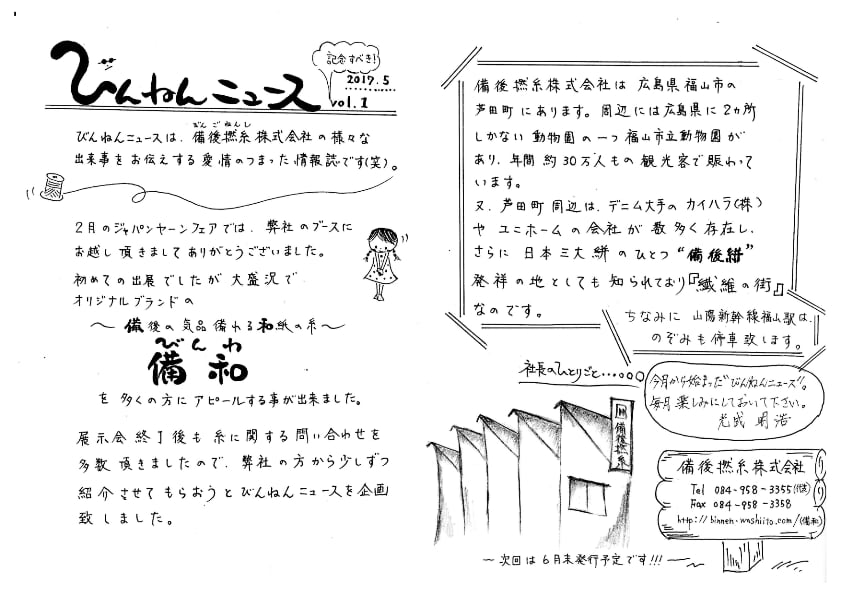 びんねんニュース
記念すべき!
2017.5
vol.1
びんごねんし
びんねんニュースは、備後撚糸株式会社の様々な
出来事をお伝えする愛情のつまった情報誌です(笑)。
2月のジャパンヤーンフェアでは、弊社のブースに
お越し頂きましてありがとうございました。
初めての出展でしたが大盛況で
オリジナルブランドの
～備後の気品備わる和紙の糸～
びんわ
備和
を多くの方にアピールする事が出来ました。
展示会終了後も糸に関する問い合わせを
多数頂きましたので、弊社の方から少しずつ
紹介させてもらおうとびんねんニュースを企画
致しました。
備後撚糸株式会社は広島県福山市の
芦田町にあります。周辺には広島県に2カ所
しかない動物園の一つ福山市立動物園が
あり、年間約30万人もの観光客で賑わって
います。
又、芦田町周辺は、デニム大手のカイハラ(株)
やユニホームの会社が数多く存在し、
さらに日本三大絣のひとつ“備後絣”
発祥の地としても知られており『繊維の街』
なのです。
ちなみに山陽新幹線福山駅は、
のぞみも停車致します。
社長のひとりごと・・・。。。。
今月から始まった“びんねんニュース”。
毎月楽しみにしておいて下さい。
光成明浩
備後撚糸
備後撚糸株式会社
Tel 084-958-3355(代表)
Fax 084-958-3358
http://binnen-washiito.com/(備和)
～次回は6月末発行予定です!!!～